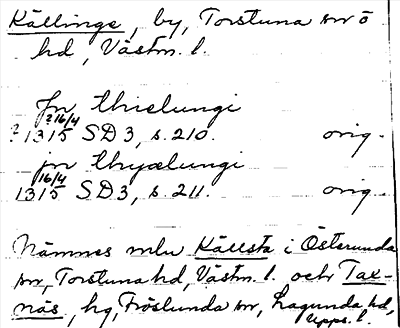 Källinge, by, Torstuna sn o
hd, Västm. l.
jn thielungi
? 16/4
? 1315 SD3, s. 210. orig.
jn thyælungi
16/4
1315 SD3, s. 211. orig.
Nämnes mlu Källsta i Österunda
sn, Torstuna hd, Västm. l. och Tax-
näs, hg, Fröslunda sn, Lagunda hd,
Upps. l.